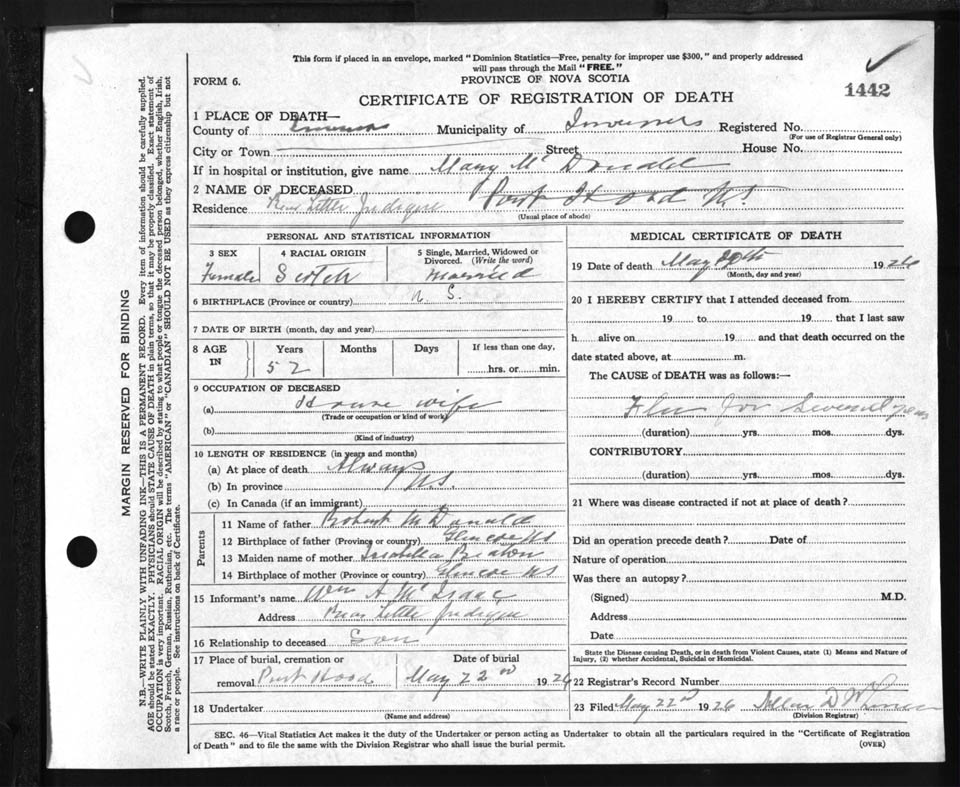 This form if placed in an envelope, marked "Dominion Statistics—Free, penalty for improper use $300," and properly addressed
will pass through the Mail "FREE."
FORM 6.
PROVINCE OF NOVA SCOTIA
1442
CERTIFICATE OF REGISTRATION OF DEATH
1 PLACE OF DEATH—
County of Inverness Municipality of Inverness Registered No.
(For use of Registrar General only)
City or Town Street House No.
If in hospital or institution, give name Mary McDonald
2 NAME OF DECEASED Port Hood NS
Residence Rear Little Judique
(Usual place of abode)
PERSONAL AND STATISTICAL INFORMATION
3 SEX 4 RACIAL ORIGIN 5 Single, Married, Widowed or
Divorced. (Write the word)
Female Scotch married
6 BIRTHPLACE (Province or country) N S.
7 DATE OF BIRTH (month, day and year)
8 AGE IN Years Months Days If less than one day,
52 hrs. or min.
9 OCCUPATION OF DECEASED
(a) House wife
(Trade or occupation or kind of work)
(b)
(Kind of industry)
10 LENGTH OF RESIDENCE (in years and months)
(a) At place of death Always
(b) In province NS.
(c) In Canada (if an immigrant)
Parents
11 Name of father Robert McDonald
12 Birthplace of father (Province or country) Glencoe NS
13 Maiden name of mother Isabella Beaton
14 Birthplace of mother (Province or country) Glencoe NS
15 Informant's name Wm A McIsaac
Address Rear Little Judique
16 Relationship to deceased Son
17 Place of burial, cremation or Date of burial
removal Port Hood May 22nd 1926
18 Undertaker
(Name and address)
MEDICAL CERTIFICATE OF DEATH
19 Date of death May 20th 1926
(Month, day and year)
20 I HEREBY CERTIFY that I attended deceased from
19 to 19 that I last saw
h alive on 19 and that death occurred on the
date stated above, at m.
The CAUSE of DEATH was as follows:—
Flu for several years
(duration) yrs. mos. dys.
CONTRIBUTORY
(duration) yrs. mos. dys.
21 Where was disease contracted if not at place of death?
Did an operation precede death? Date of
Nature of operation
Was there an autopsy?
(Signed) M.D.
Address
Date
State the Disease causing Death, or in death from Violent Causes, state (1) Means and Nature of
Injury, (2) whether Accidental, Suicidal or Homicidal.
22 Registrar's Record Number
23 Filed May 22nd 1926
(Division Registrar)
SEC. 46—Vital Statistics Act makes it the duty of the Undertaker or person acting as Undertaker to obtain all the particulars required in the "Certificate of Registration
of Death" and to file the same with the Division Registrar who shall issue the burial permit.
(OVER)
MARGIN RESERVED FOR BINDING
N.B.—WRITE PLAINLY WITH UNFADING INK—THIS IS A PERMANENT RECORD. Every item of information should be carefully supplied.
AGE should be stated EXACTLY. PHYSICIANS should STATE CAUSE OF DEATH in plain terms, so that it may be properly classified. Exact statement of
OCCUPATION is very important. RACIAL ORIGIN will be described by stating to what people or tongue the deceased person belonged, whether English, Irish,
Scotch, French, German, Russian, Ruthenian, etc. The terms "AMERICAN" or "CANADIAN" SHOULD NOT BE USED as they express citizenship but not
a race or people. See instructions on back of Certificate.